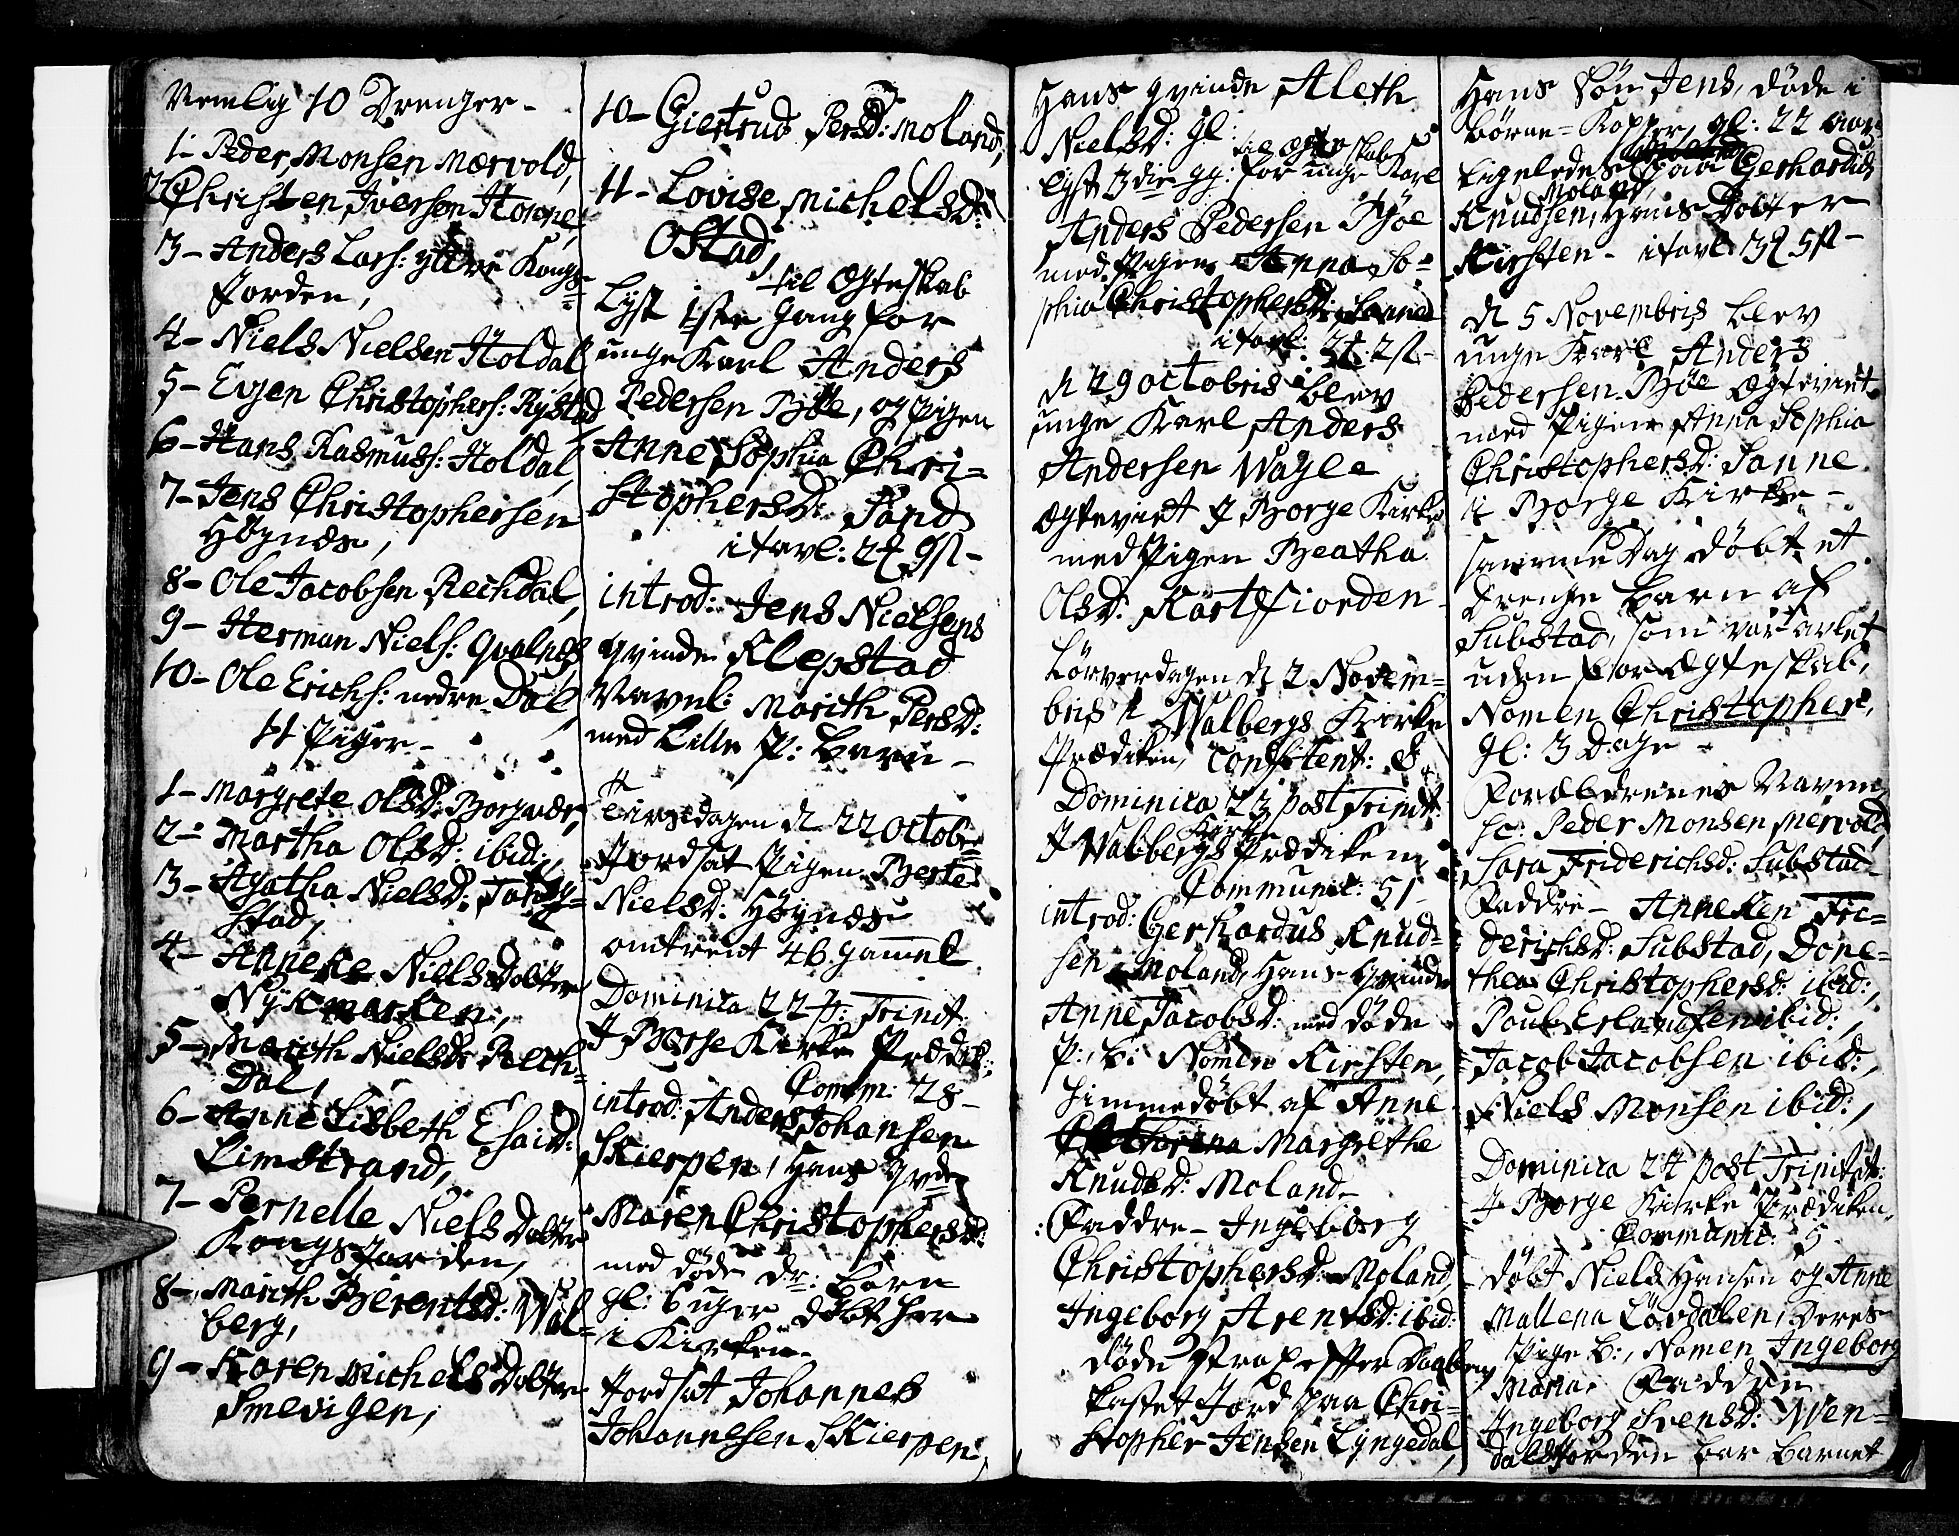 Nemlig 10 Drenger -
1 - Peder Monsen Mærvold,
2 Christen Iversen Howne,
3 - Anders Lars: yttre Kongs=
Jorden,
4 - Niels Nielsen Holdal
5 - Evjen Christophers: Rystad
6 - Hans Rasmuss: Holdal,
7 - Jens Christophersen
Høynæs,
8 - Ole Jacobsen Rechdal,
9 - Herman Niels: Qvalnæs
10 - Ole Erichs: nedre Dal,
11 Piger -
1 - Margrete OlsD: Borgvær,
2 - Martha OlsD: ibid:,
3 - Agatha NielsD: Tang=
stad,
4 - Anneke Niels Dotter
Nykmarken,
5 - Marith NielsD: Rech=
Dal,
6 - Anne Lisbeth EsaiD:
Limstrand,
7 - Pernelle Niels Dotter
Kongsjorden,
8 - Marith BerentsD: Wal=
berg,
9 - Karen Michels Dotter
Smevigen,
10 - Giertrud PersD: Moland,
11 - Lovise MichelsD:
Ostad,
til Ægteskab
Lyst 1ste Gang for
unge Karl Anders
Pedersen Bøe, og Pigen
Anne Sophia Chri=
stophersD: Sand
i tavl: 2 9
introd: Jens Nielsens
qvinde Klepstad
Navnl: Marith PersD:
med Lille P: Barn -
Tirsdagen d 22 Octobr
Jordsat Pigen Berte
NielsD: Høynæs
omtrent 46 gammel
Dominica 22 p: Trinit:
J Borge Kirke Prædik:,
Comm: 28 -
introd: Anders Johansen
Skierpen, Hans Qvde
Maren ChristophersD:
med døde dr: barn
gl: 6 uger døbt her
i Kirken -
Jordsat Johannes
Johannesen Skierpen,
Hans qvinde Aleth
NielsD: gl:
til Ægteskab
Lyst 3die gg: for unge Karl
Anders Pedersen Bøe
med Pigen Anna So=
phia ChristophersD: Sanne
i tavl: 2
d 29 octobris blev
unge Karl Anders
Andersen Wagle
Ægteviet J Borge Kirke
med Pigen Beatha
OlsD: Kartfiorden -
Løverdagen d 2 Novem=
bris i Walbergs Kirke
Prædiken, Confitent: 8
Dominica 23 post Trinit:
J Walbergs Kirke Prædiken,
Communic: 51 -
introd: Gerhardus Knud=
sen Moland, Hans Qvinde
Anne JacobsD: med døde
P: B: Nomen Kirsten,
Himmedøbt af Anne
Margrethe
KnudsD: Moland -
Faddre - Ingeborg
ChristophersD: Moland,
Ingeborg ArentsD: ibid:
døde strax efter Daaben
kastet Jord paa Chri=
stopher Jensen Lyngedal,
Hans Søn Jens, døde i
børne=Kopper, gl: 22
Ligeledes paa Gerhardus
Moland,
Knudsen, Hans Dotter
Kirsten - i tavl 3 5
d 5 Novembris blev
unge Karl Anders
Pedersen Bøe Ægteviet
med Pigen Anna Sophia
ChristophersD: Sanne
i Borge Kirke -
samme Dag døbt et
Drenge barn af
Substad, som var avlet
uden for Ægteskab,
Nomen Christopher,
gl: 3 Dage -
Forældrenes Navne,
sc: Peder Monsen Mervold,
Sara FriderichsD: Substad -
Faddre - Anneken Fri=
derichsD: Substad, Done=
thea ChristophersD: ibid:,
Poul Erlandsen ibid:,
Jacob Jacobsen ibid:,
Niels Monsen ibid:,
Dominica 24 post Trinit:
J Borge Kirke Prædiken,
Communic: 5 -
døbt Niels Hansen og Anne
Mallena Løvdalen, Deres
Pige B:, Nomen Ingeborg
Maria. Faddre
Ingeborg SvensD: Wen=
dalsjorden bar barnet